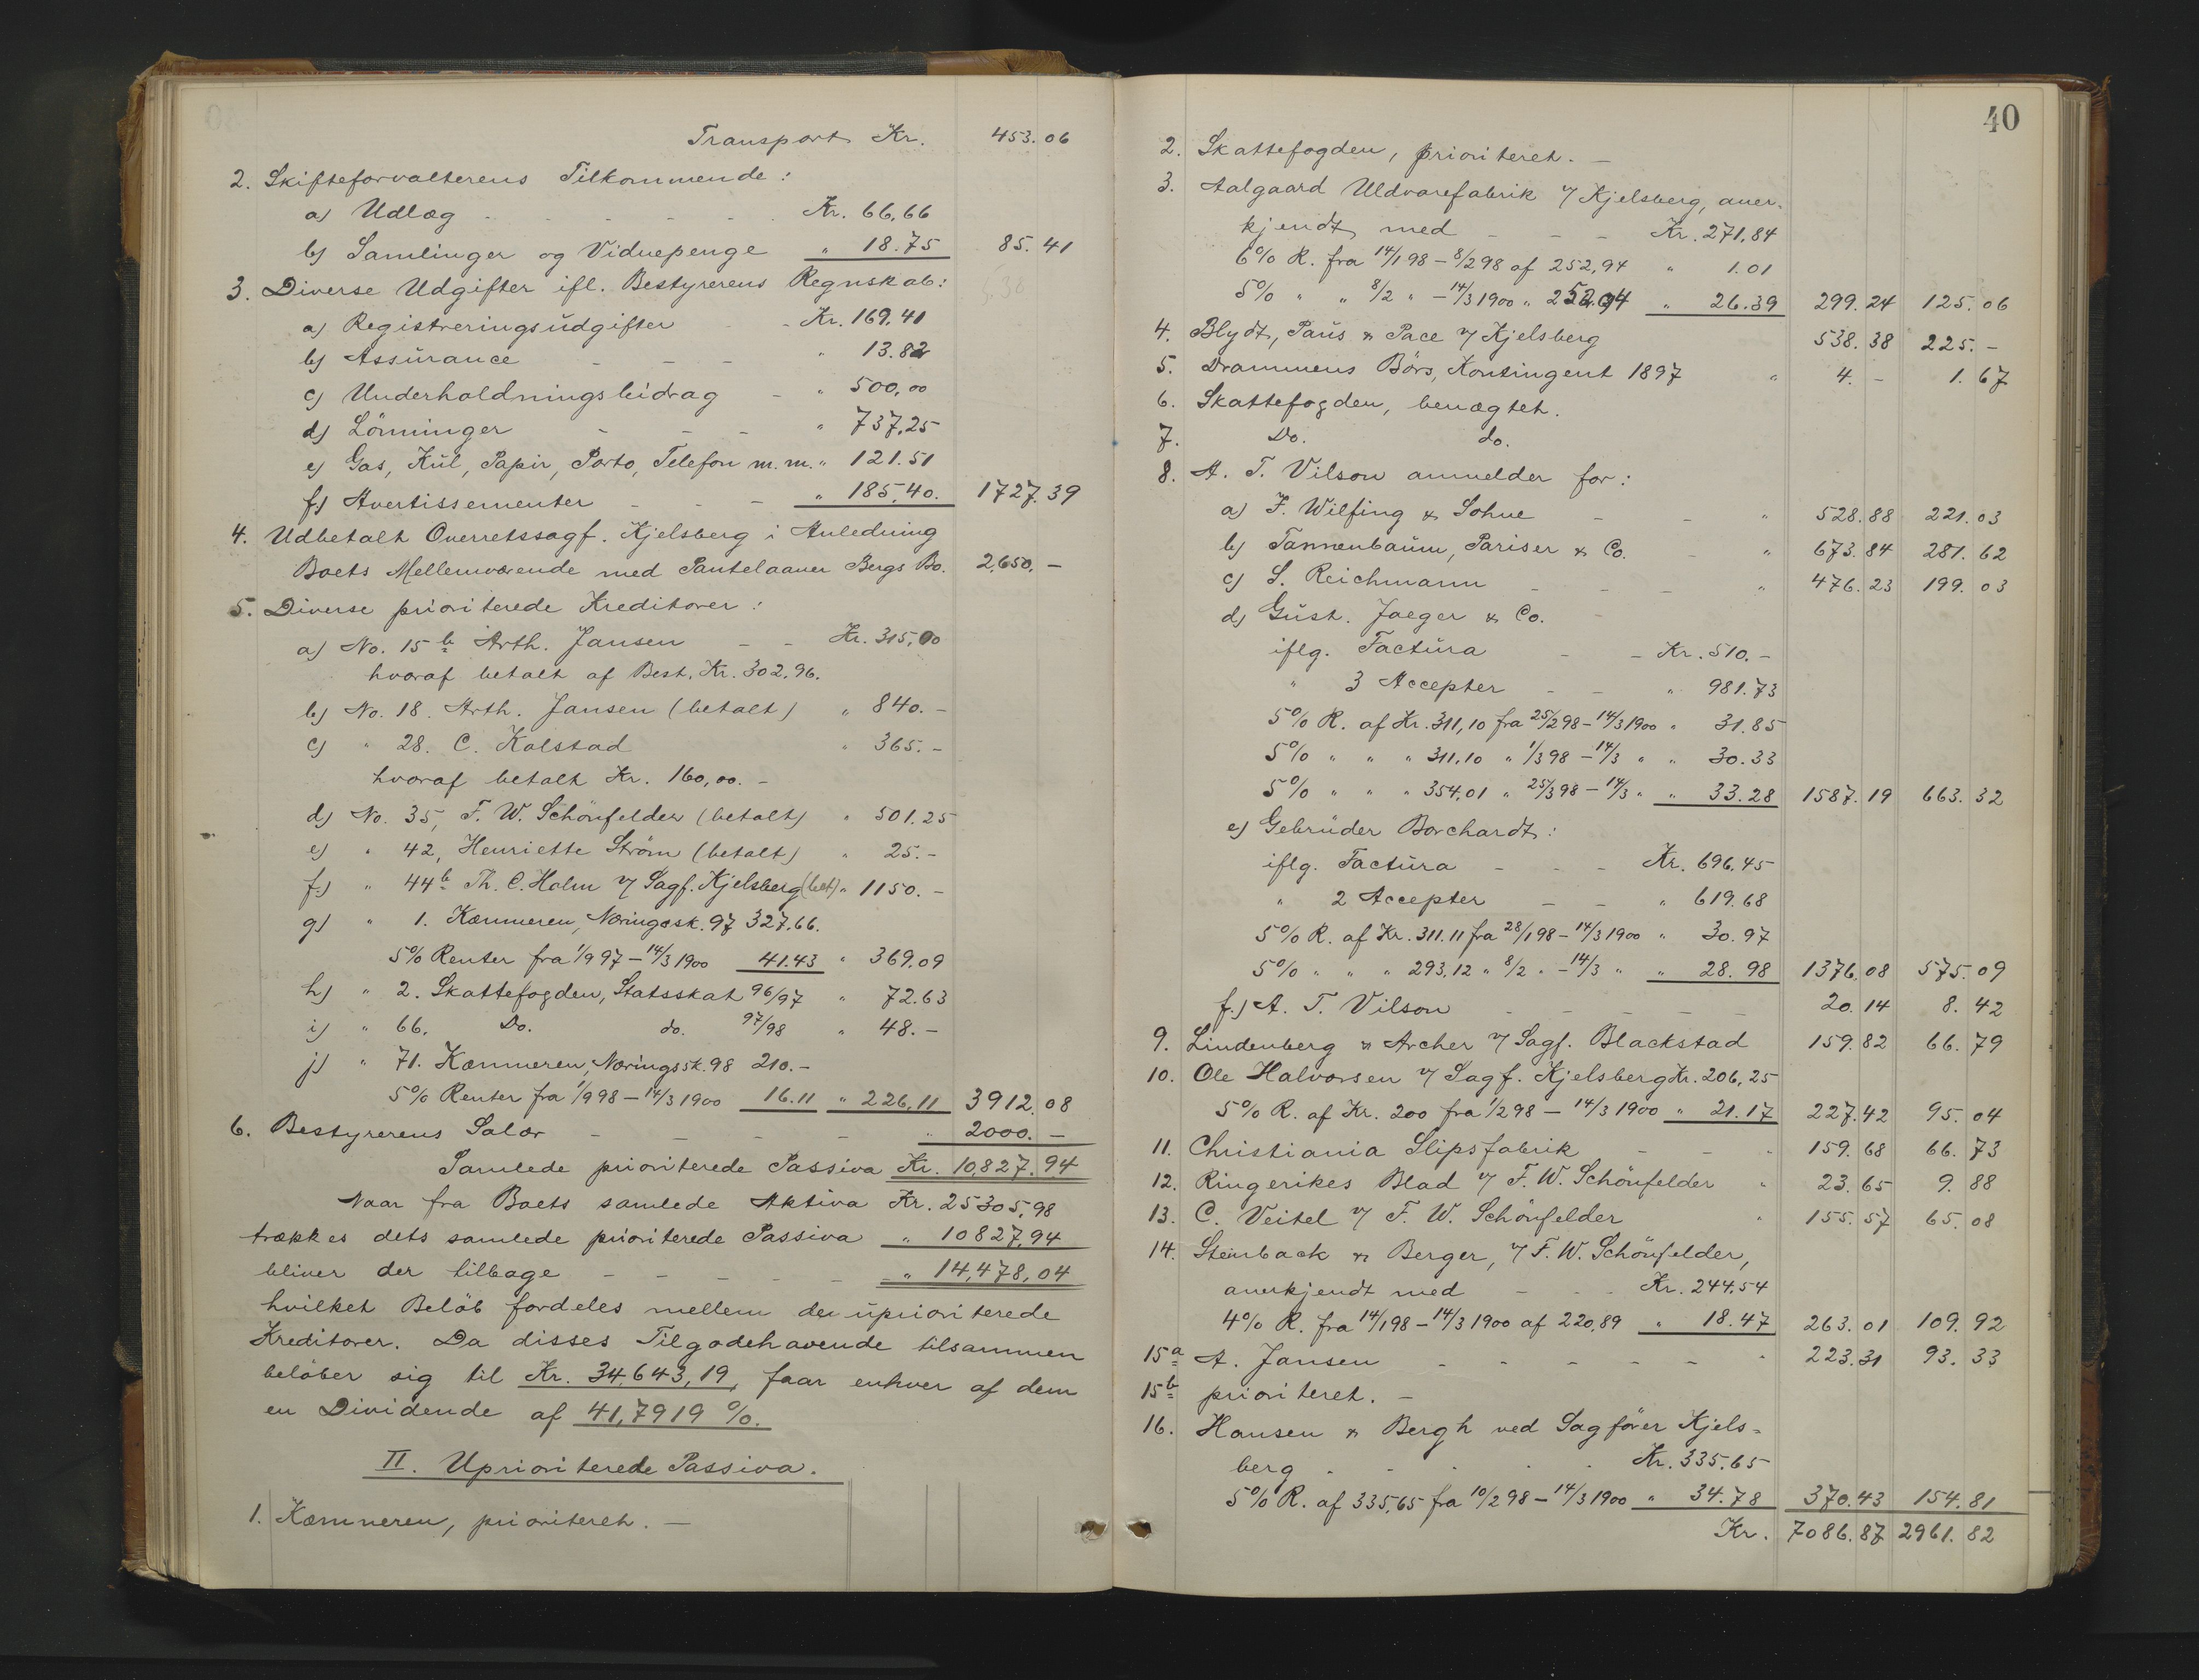 Transport Kr. 453.06
2. Skifteforvalterens Tilkommende:
a) Udlæg - - - - - Kr. 66,66
b) Samlinger og Vidnepenge " 18.75 85.41
3. Diverse Udgifter ifl. Bestyrerens Regnskab:
a) Registreringsudgifter - Kr. 169,41
b) Assürance - - - " 13.82
c) Underholdningsbidrag - " 500,00
d) Lönninger - - - " 737,25
e) Gas, Kul, Papir, Porto, Telefon m.m. " 121.51
f) Avertissementer - - - " 185,40. 1727.39
4. Udbetalt Overretssagf. Kjelsberg i Anledning
Boets Mellemværende med Pantelaaner Bergs Bo. 2,650.-
5. Diverse prioriterede Kreditorer:
a) No. 15b Arth. Jansen - - Kr. 315,00
hvoraf betalt af Best. Kr. 302.96.
b) No. 18. Arth. Jansen (betalt) " 840.-
c) " 28. C. Kolstad " 365.-
hvoraf betalt Kr. 160,00.-
d) No. 35, F. W. Schönfelder (betalt) " 501.25
e) " 42, Henriette Ström (betalt) " 25.-
f) " 44b Th. C. Holm v/ Sagf. Kjelsberg (bet) " 1150.-
g) " 1. Kæmneren, Næringssk. 97 327.66.
5% Renter fra 1/9 97 - 14/3 1900 41.43 " 369.09
h) " 2. Skattefogden, Statsskat 96/97 " 72.63
i) " 66. Do. do. 97/98 " 48.-
j) " 71. Kæmneren, Næringssk. 98 210.-
5% Renter fra 1/9 98 - 14/3 1900 16.11 " 226,11 3912.08
6. Bestyrerens Salær - - - - " 2000.-
Samlede prioriterede Passiva Kr. 10,827.94
Naar fra Boets samlede Aktiva Kr. 25305,98
trækkes dets samlede prioriterede Passiva " 10827,94
bliver der tilbage - - - - - " 14,478,04
hvilket Belöb fordeles mellem de upriviterede
Kreditorer. Da disses Tilgodehavende tilsammen
belöber sig til Kr. 34,643,19, faar enhver af dem
en Dividende af 41,7919 %.
II. Uprioriterede Passiva.
1. Kæmneren, prioriteret. -
40
2. Skattefogden, prioriteret. -
3. Aalgaard Uldvarefabrik v/ Kjelsberg, aner-
kjendt med - - - Kr. 271,84
6% R. fra 14/1 98 - 8/2 98 af 252,94 " 1.01
5% " " 8/2 " - 14/3 1900 " 252,94 " 26.39 299.24 125.06
4. Blydt, Paüs & Pace v/ Kjelsberg 538.38 225.-
5. Drammens Börs, Kontingent 1897 " 4.- 1.67
6. Skattefogden, benægtet.
7. Do. do.
8. A. T. Vilson anmelder for:
a) F. Wilfing & Sohne - - " 528.88 221.03
b) Tannenbaüm, Pariser & Co. - " 673.84 281.62
c) S. Reichmann - - - " 476.23 199.03
d) Güst. Jaeger & Co. -
iflg. Factüra - - Kr. 510.-
" 3 Accepter - - " 981.73
5% R. af Kr. 311,10 fra 25/2 98 - 14/3 1900 " 31.85
5% " " " 311,10 " 1/3 98 - 14/3 " " 30.33
5% " " " 354,01 " 25/3 98 - 14/3 " " 33.28 1587.19 663.32
e) Gebrüder Borchardt:
iflg. Factüra - - - Kr. 696,45
" 2 Accepter - - " 619.68
5% R. af Kr. 311.11 fra 28/1 98 - 14/3 1900 " 30.97
5% " " " 293,12 " 8/2 " - 14/3 " " 28.98 1376,08 575.09
f) A. T. Vilson - - - - - 20.14 8.42
9. Lindenberg & Archer v/ Sagf. Blackstad 159.82 66.79
10. Ole Halvorsen v/ Sagf. Kjelsberg Kr. 206,25
5% R. af Kr. 200 fra 1/2 98 - 14/3 1900 " 21.17 227.42 95.04
11. Christiania Slipsfabrik - - - 159.68 66.73
12. Ringerikes Blad v/ F. W. Schönfelder " 23.65 9.88
13. C. Veitel v/ F. W. Schönfelder " 155.57 65.08
14. Steinback & Berger, v/ F. W. Schönfelder,
anerkjendt med - - - Kr. 244.54
4% R. fra 14/1 98 - 14/3 1900 af 220,89 " 18.47 263.01 109.92
15a A. Jansen - - - - - " 223.31 93.33
15b prioriteret. -
16. Hansen & Bergh ved Sagförer Kjels-
berg - - - - - Kr. 335.65
5% R. af 335,65 fra 10/2 98 - 14/3 1900 " 34.78 370.43 154.81
Kr. 7086.87 2961.82